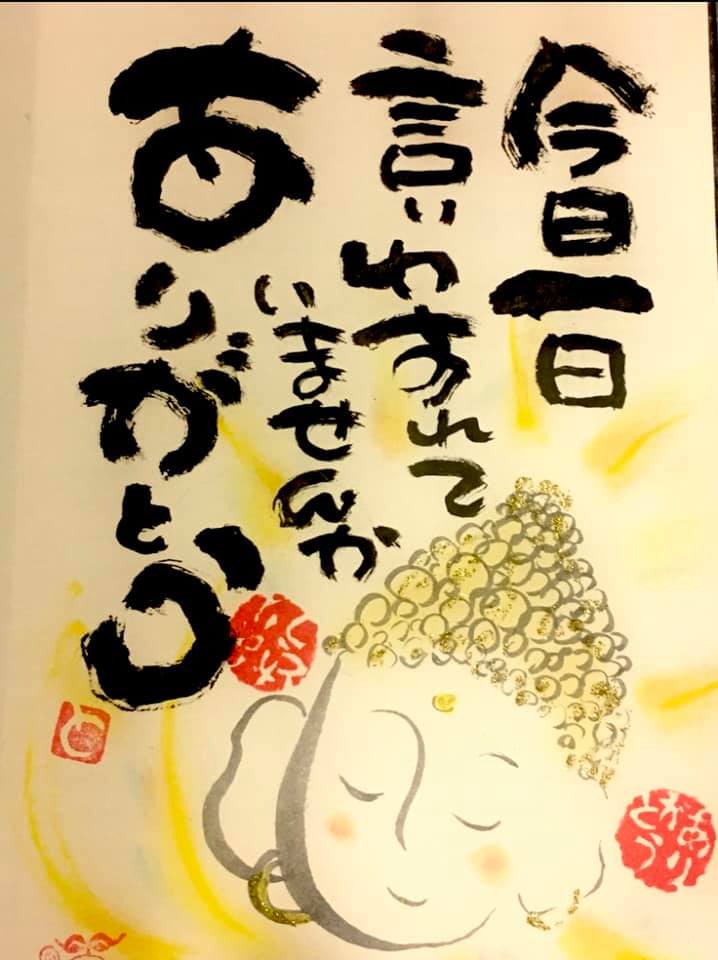 今日一日
言いわすれて
いませんか
ありがとう